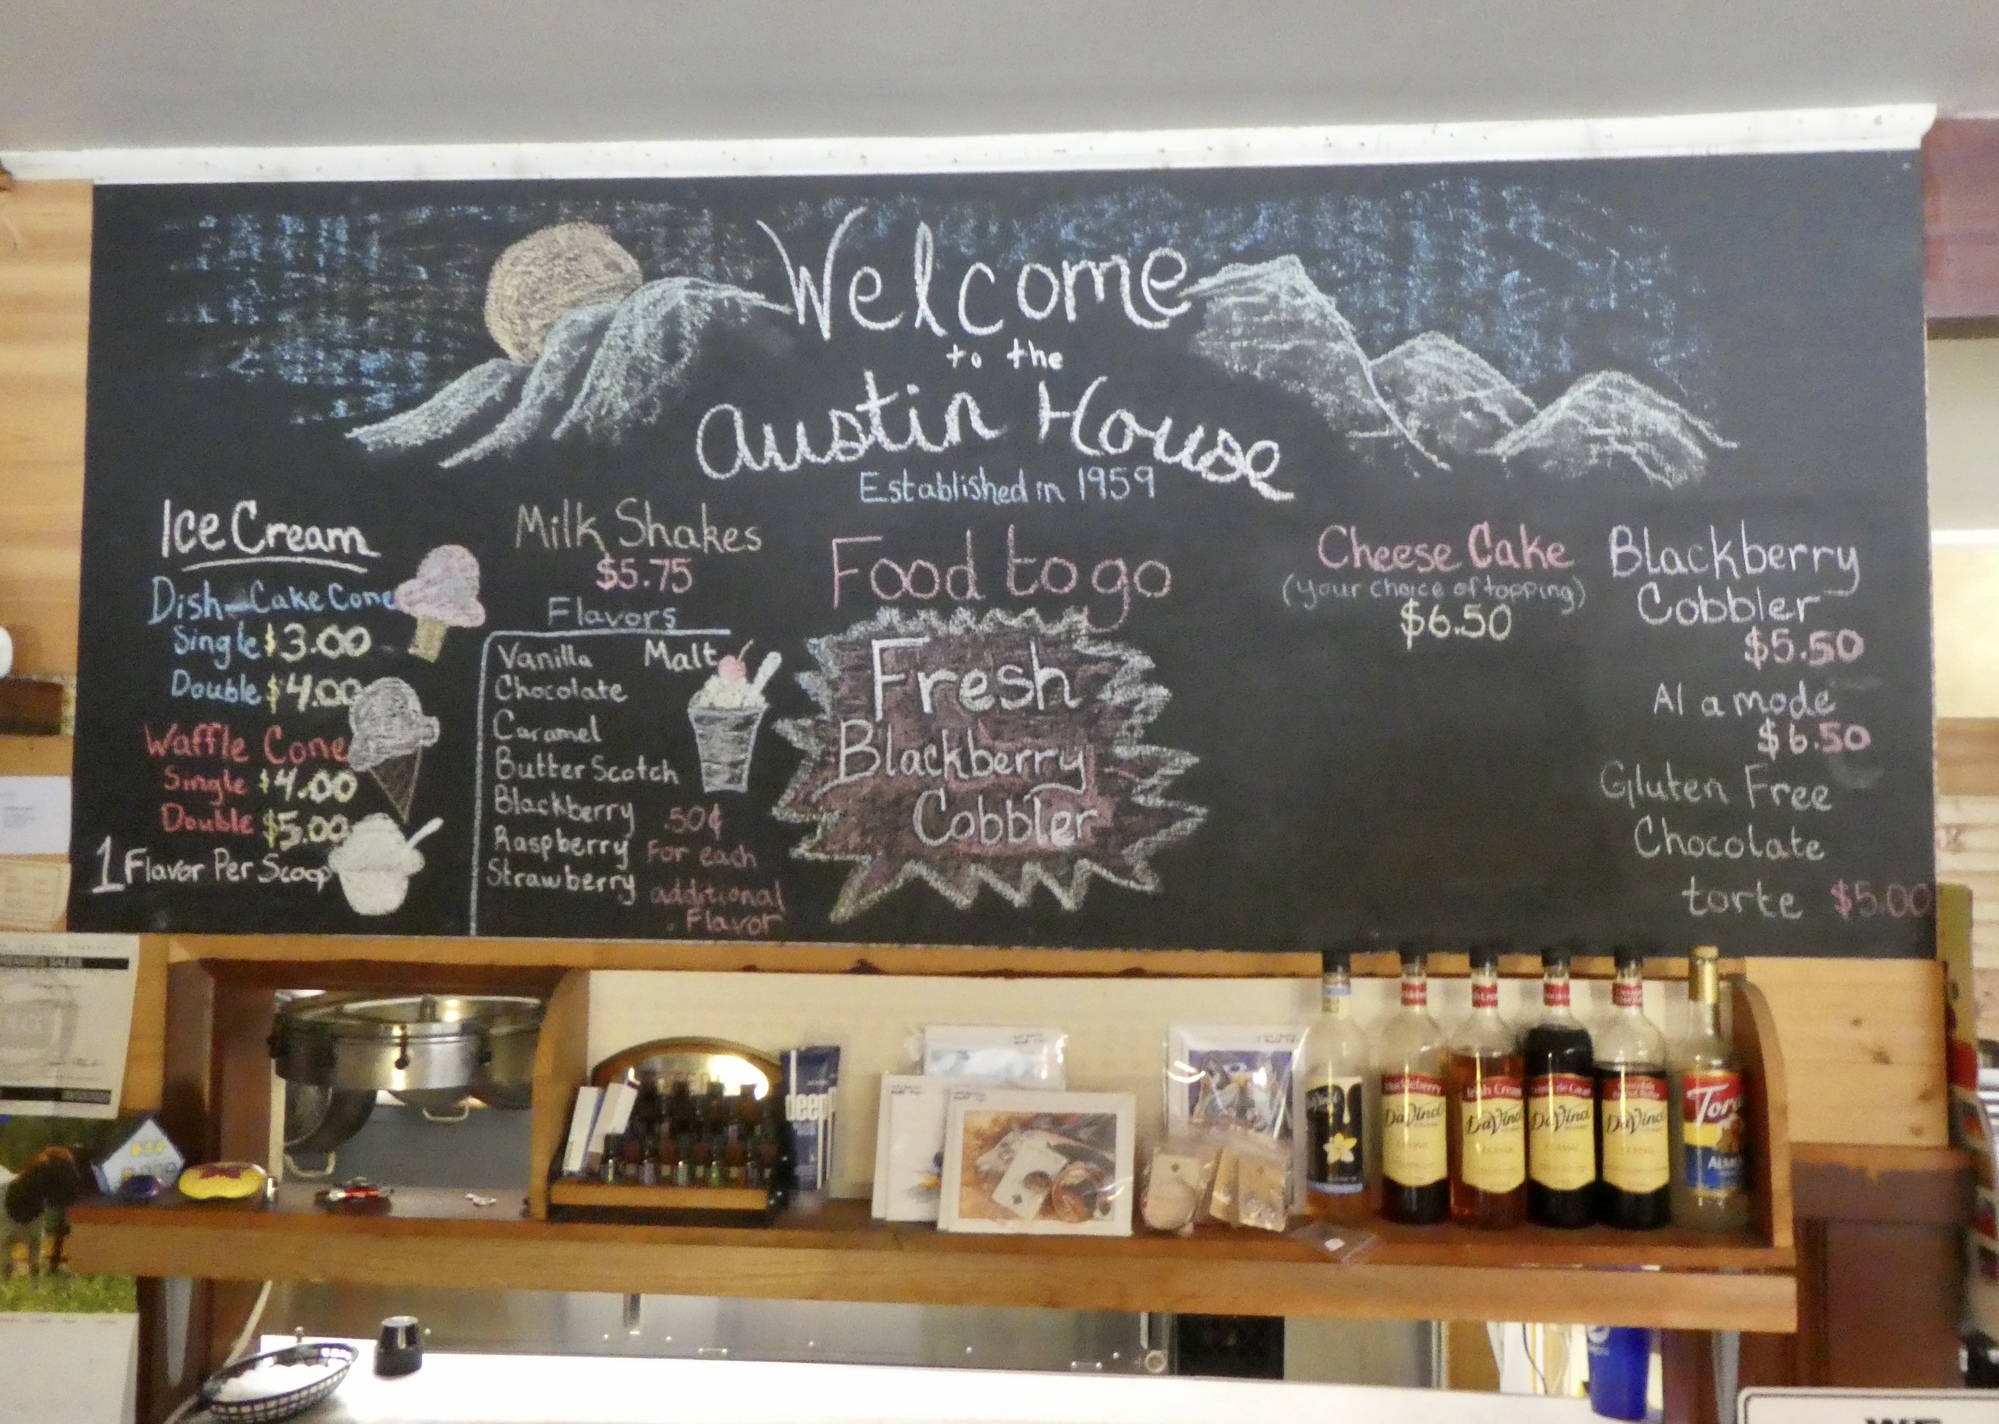 Welcome
to the
Austin House
Established in 1959
Ice Cream
Dish-Cake Cone
Single $3.00
Double $4.00
Waffle Cone
Single $4.00
Double $5.00
1 Flavor Per Scoop
Milk Shakes
$5.75
Flavors
Vanilla Malt
Chocolate
Caramel
Butter Scotch
Blackberry
Raspberry
Strawberry
.50¢
For each
additional
Flavor
Food to go
Fresh
Blackberry
Cobbler
Cheese Cake
(your choice of topping)
$6.50
Blackberry
Cobbler
$5.50
Al a mode
$6.50
Gluten Free
Chocolate
torte $5.00
deep
Huckleberry
DaVinci
Irish Cream
DaVinci
DaVinci
DaVinci